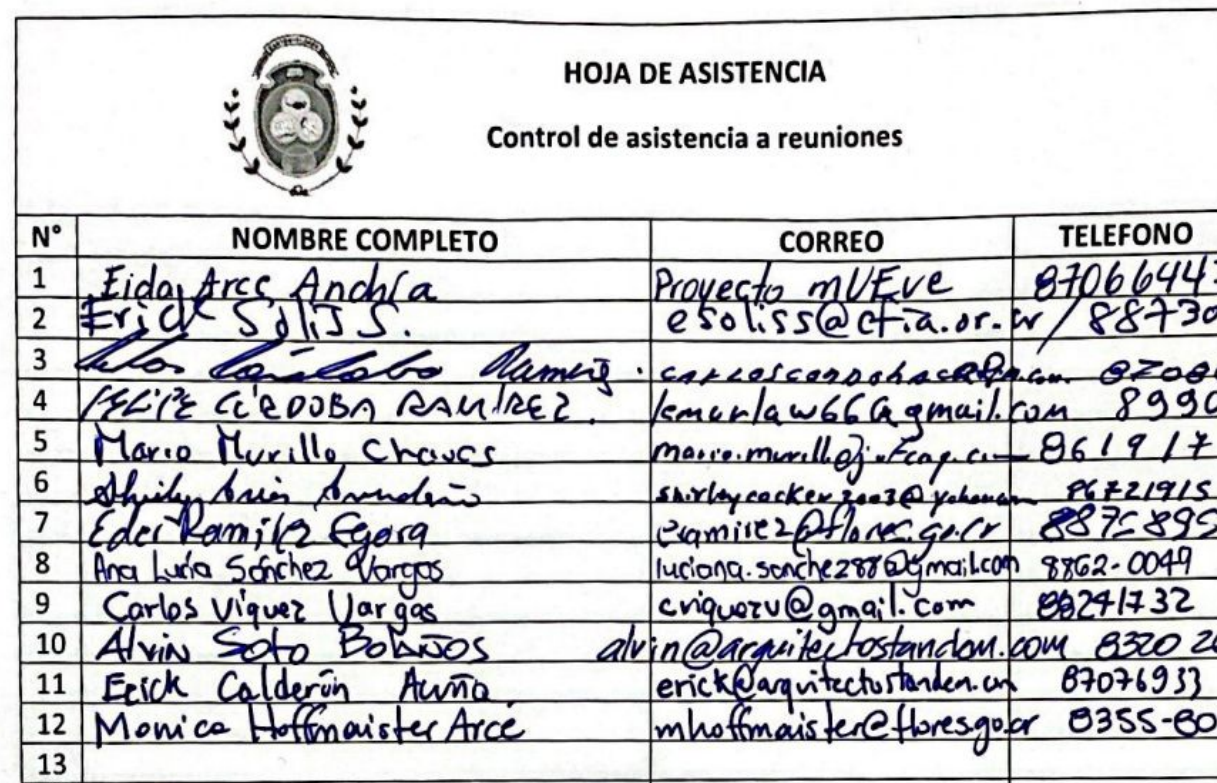 HOJA DE ASISTENCIA
Control de asistencia a reuniones
N° NOMBRE COMPLETO CORREO TELEFONO
1 Eida Arce Anchía Proyecto mUEve 8706644
2 Erick Solís S. esoliss@cfia.or.cr / 8873
3 Córdoba Ramírez.
4 FELIPE CÓRDOBA RAMÍREZ. lemurlaw66@gmail.com 8990
5 Mario Murillo Chaves 861917
6 Shirley Arias shirleycocker2003@yahoo 86721915
7 Eder Ramírez Egora eramirez@flores.go.cr 8875899
8 Ana Lucía Sánchez Vargas luciana.sanchez288@gmail.com 8862-0049
9 Carlos Víquez Vargas cviquezv@gmail.com 88241732
10 Alvin Soto Bolaños alvin@arquitectostandem.com 8320 2
11 Erick Calderón Acuña erick@arquitectostandem.com 87076933
12 Monica Hoffmaister Arce mhoffmaister@flores.go.cr 8355-80
13